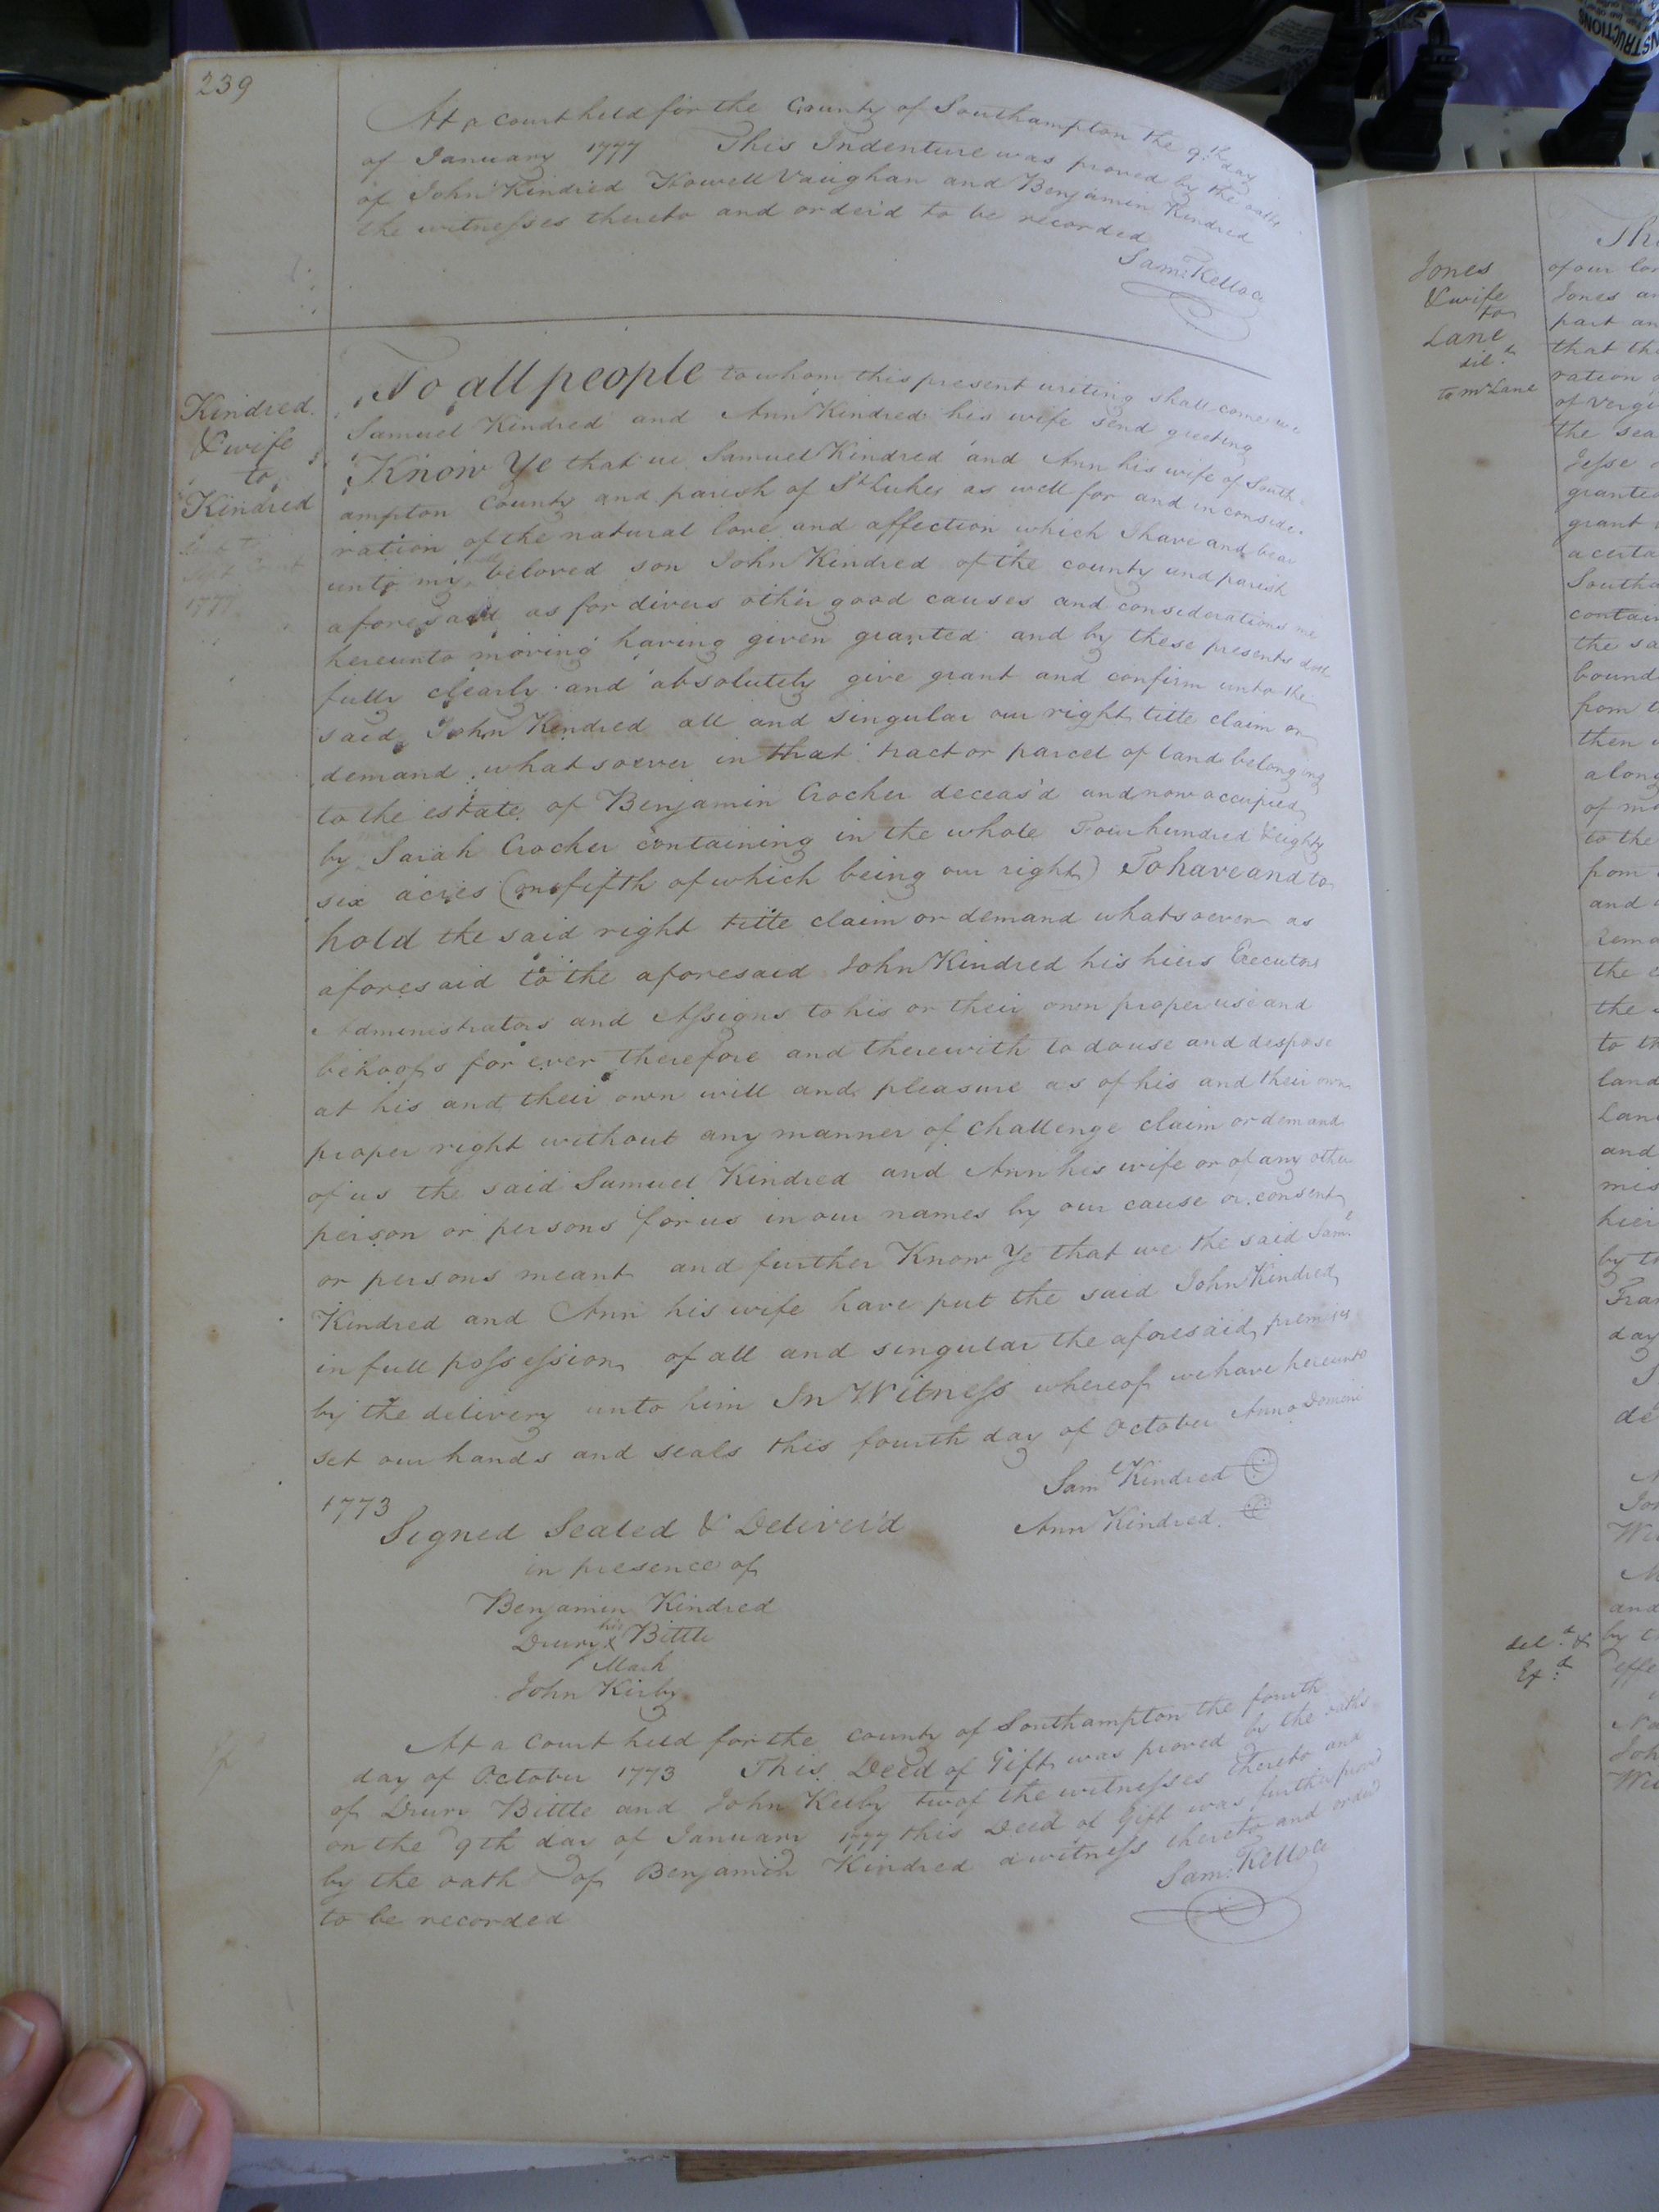 239
At a court held for the County of Southampton the 9th day
of January 1777 This Indenture was proved by the oaths
of John Kindred Howell Vaughan and Benjamin Kindred
the witnesses thereto and order'd to be recorded
Sam: Kello Cl
Kindred
& wife
to
Kindred
1777
To all people to whom this present writing shall come we
Samuel Kindred and Ann Kindred his wife send greeting
Know Ye that we Samuel Kindred and Ann his wife of South
ampton County and parish of St Lukes as well for and in conside-
ration of the natural love and affection which I have and bear
unto my beloved son John Kindred of the county and parish
aforesaid as for divers other good causes and considerations me
hereunto moving having given granted and by these presents do
fully clearly and absolutely give grant and confirm unto the
said John Kindred all and singular our right title claim or
demand whatsoever in that tract or parcel of land belonging
to the estate of Benjamin Crocker deceas'd and now occupied
by Sarah Crocker containing in the whole Four hundred & eighty
six acres (one fifth of which being our right) To have and to
hold the said right title claim or demand whatsoever as
aforesaid to the aforesaid John Kindred his hiers Executors
Administrators and Assigns to his or their own proper use and
behoofs for ever therefore and therewith to do use and dispose
at his and their own will and pleasure as of his and their own
proper right without any manner of challenge claim or demand
of us the said Samuel Kindred and Ann his wife or of any other
person or persons for us in our names by our cause or consent
or persons meant and further Know Ye that we the said Saml
Kindred and Ann his wife have put the said John Kindred
in full possession of all and singular the aforesaid premises
by the delivery unto him In Witness whereof we have hereunto
set our hands and seals this fourth day of October Anno Domini
1773
Saml Kindred
Ann Kindred
Signed Sealed & Deliver'd
in presence of
Benjamin Kindred
his
Drury X Bittle
Mark
John Kirby
At a Court held for the county of Southampton the fourth
day of October 1773 This Deed of Gift was proved by the oaths
of Drury Bittle and John Keeby two of the witnesses thereto and
on the 9th day of January 1777 this Deed of Gift was further proved
by the oath of Benjamin Kindred a witness thereto and order'd
to be recorded
Sam: Kello Cl
Jones
& wife
to
Lane
del.d
to Mr Lane
of our lor
Jones an
part an
that th
ration o
of Virgi
the sea
Jesse
granted
grant
a certa
South
contain
the sa
bound
from t
then
along
of m
to the
from
and
the
the
to th
land
Lan
and
mis
hier
by th
Fra
day
de
del.d &
Ex.d
and
by t
effe
Joh